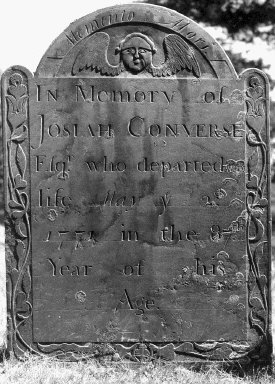 Memento Mori
IN Memory of
JOSIAH CONVERSE
Eſqr. who departed
life May ye 2d
1771 in the 87th
Year of his
Age.